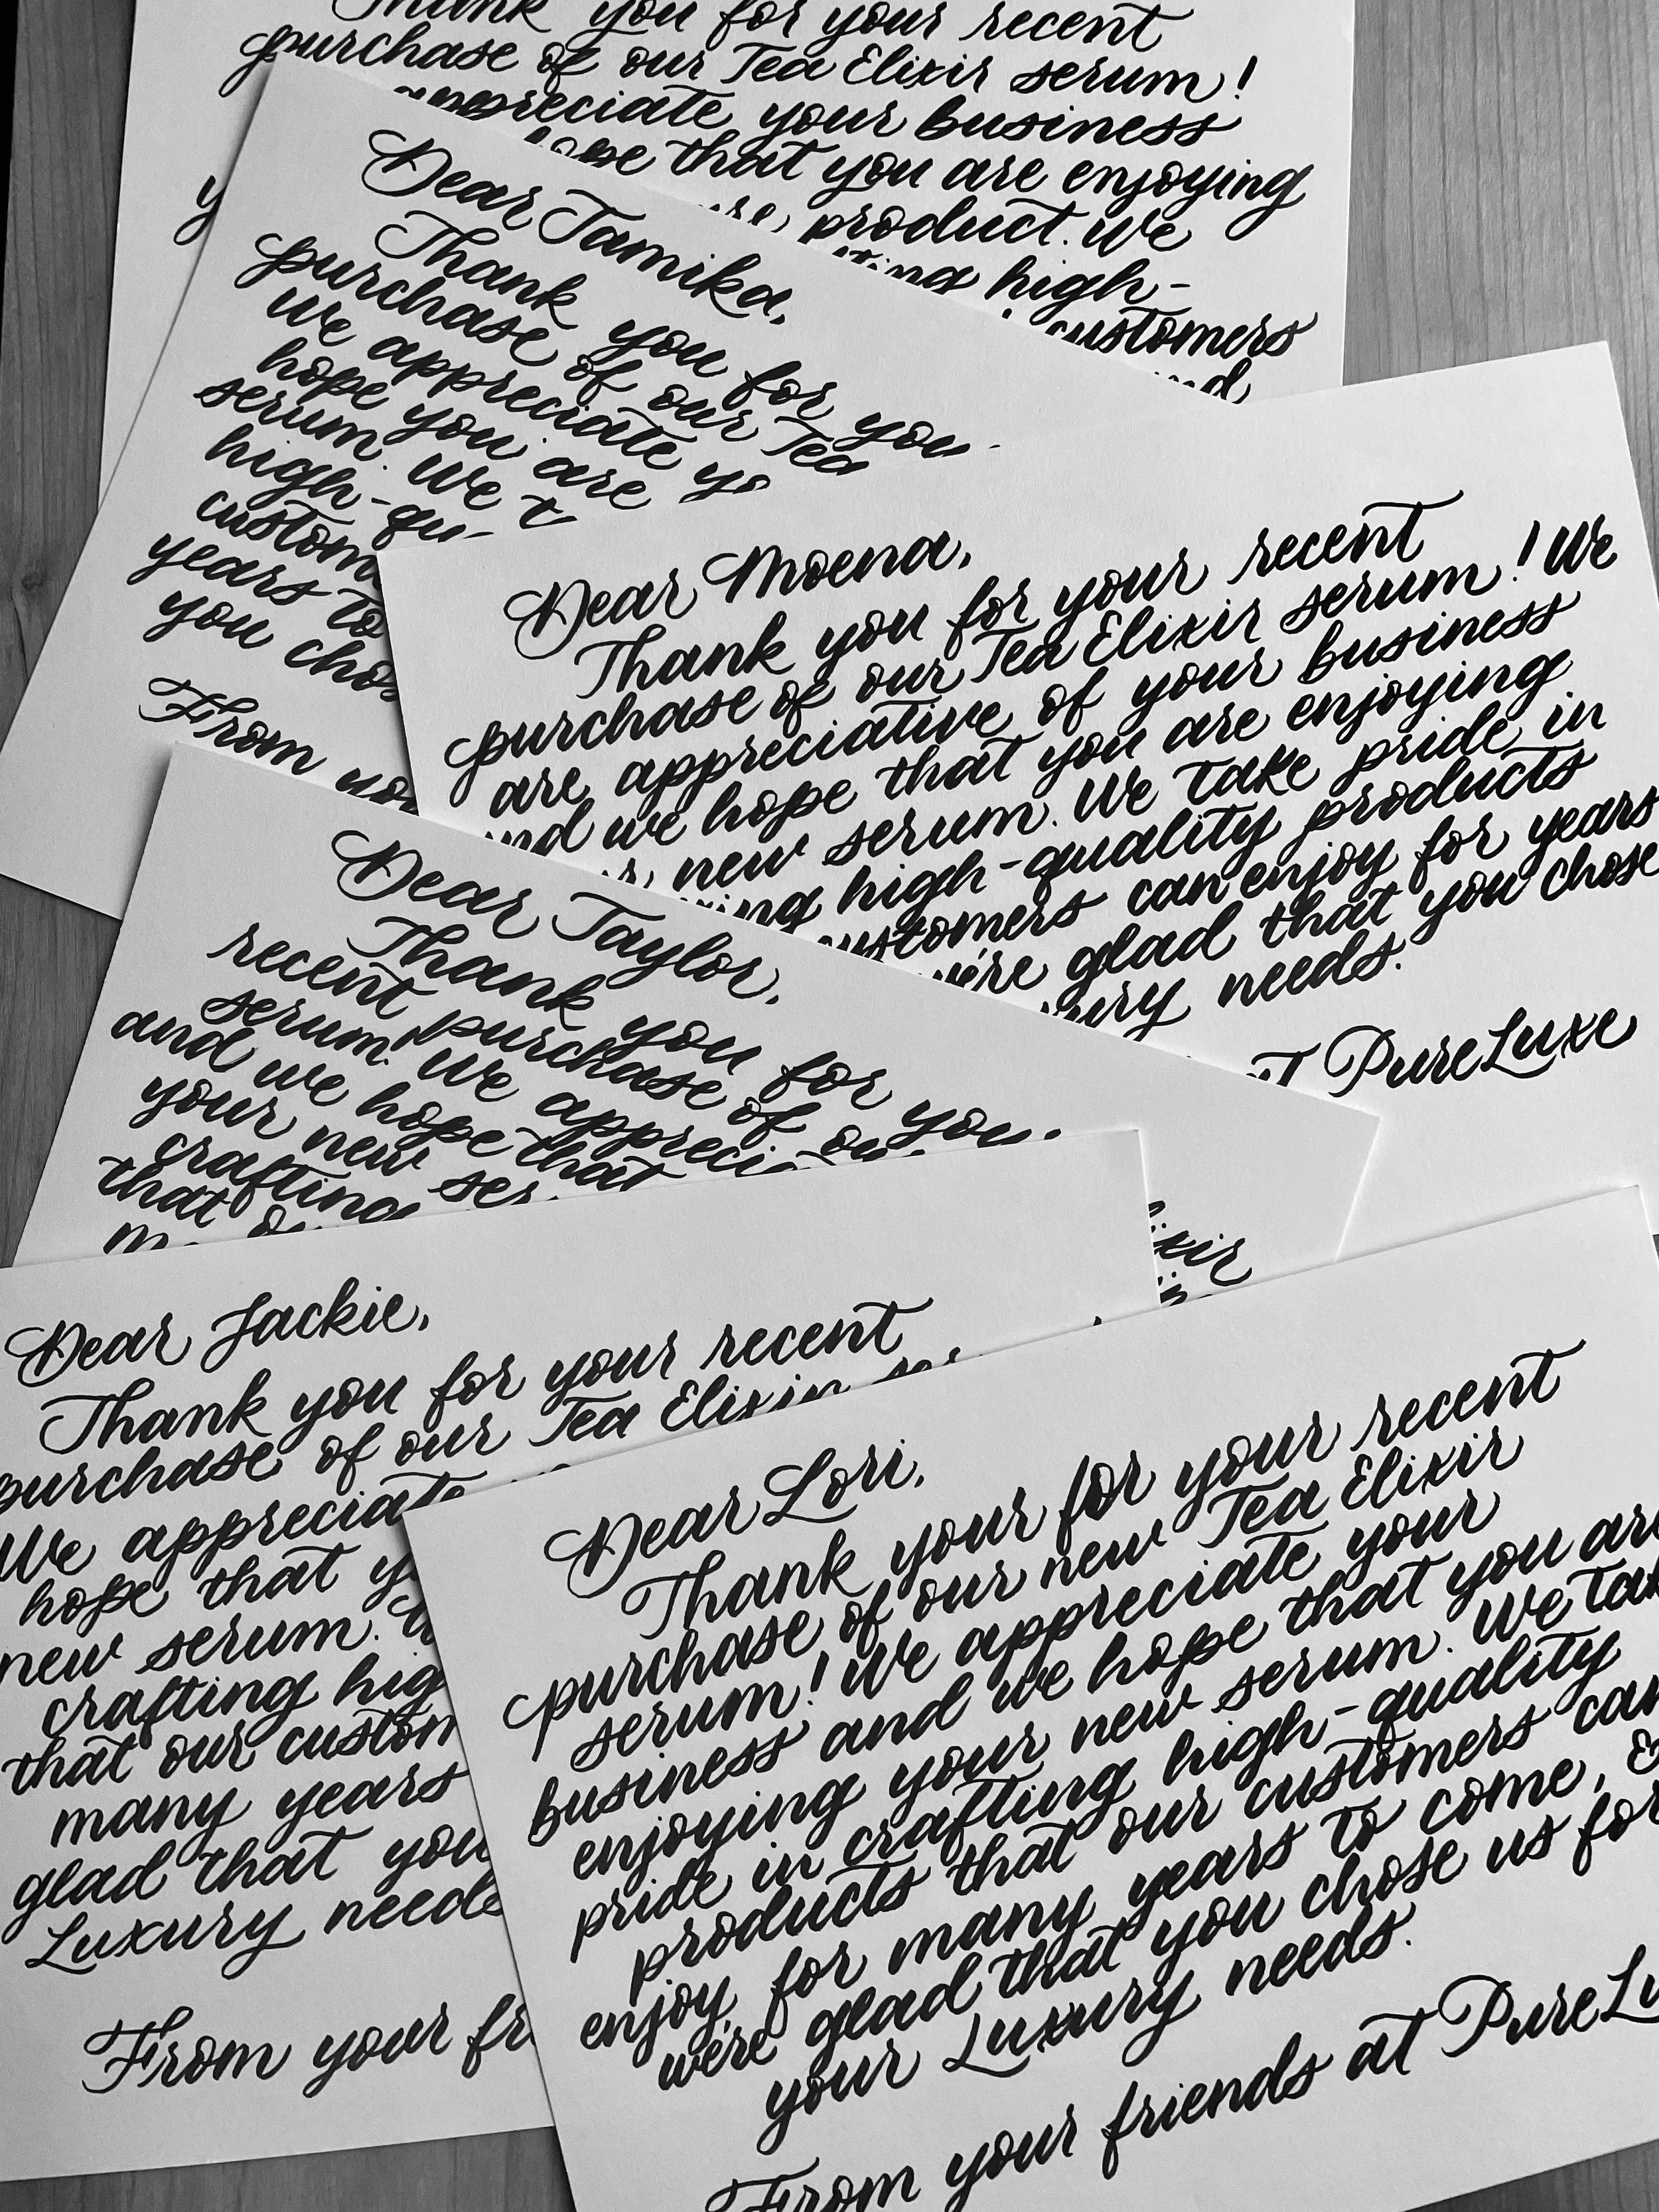 Thank you for your recent
purchase of our Tea Elixir serum!
appreciate your business
hope that you are enjoying
product. We
high-
customers
Dear Tamika,
Thank you for
purchase of our Tea
We appreciate
hope you are
serum. We
high-
years to
you
From
Dear Moena,
Thank you for your recent
purchase of our Tea Elixir serum! We
are appreciative of your business
and we hope that you are enjoying
new serum. We take pride in
high-quality products
customers can enjoy for years
we're glad that you chose
needs.
PureLuxe
Dear Taylor,
Thank you for
recent purchase of
serum! We
and we hope that
your new
crafting
that
Dear Jackie,
Thank you for your recent
purchase of our Tea Elixir
We appreciate
hope that
new serum.
crafting
that our
many years
glad that you
Luxury needs
From your
Dear Lori,
Thank your for your recent
purchase of our new Tea Elixir
serum! We appreciate your
business and we hope that you are
enjoying your new serum. We take
pride in crafting high-quality
products that our customers can
enjoy for many years to come, &
we're glad that you chose us for
your Luxury needs.
From your friends at